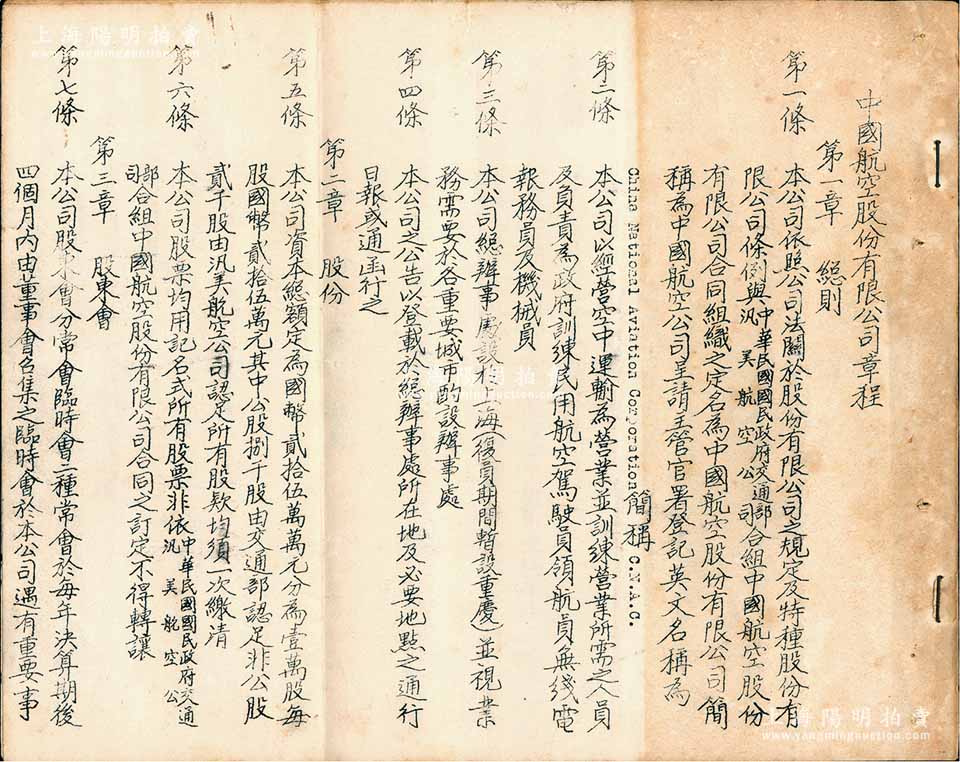 中國航空股份有限公司章程
第一章 總則
第一條 本公司依照公司法關於股份有限公司之規定及特種股份有
限公司條例與中華民國國民政府交通部汎美航空公司合組中國航空股份
有限公司合同組織之定名為中國航空股份有限公司簡
稱為中國航空公司呈請主管官署登記英文名稱為
China National Aviation Corporation 簡稱 C.N.A.C.
第二條 本公司以經營空中運輸為營業並訓練營業所需之人員
及負責為政府訓練民用航空駕駛員領航員無綫電
報務員及機械員
第三條 本公司總辦事處設於上海(復員期間暫設重慶)並視業
務需要於各重要城市酌設辦事處
第四條 本公司之公告以登載於總辦事處所在地及必要地點之通行
日報或通函行之
第二章 股份
第五條 本公司資本總額定為國幣貳拾伍萬萬元分為壹萬股每
股國幣貳拾伍萬元其中公股捌千股由交通部認足非公股
貳千股由汎美航空公司認足所有股款均須一次繳清
第六條 本公司股票均用記名式所有股票非依中華民國國民政府交通
部汎美航空公司合組中國航空股份有限公司合同之訂定不得轉讓
第三章 股東會
第七條 本公司股東會分常會臨時會二種常會於每年決算期後
四個月內由董事會召集之臨時會於本公司遇有重要事
上海陽明拍賣
www.yangmingauction.com